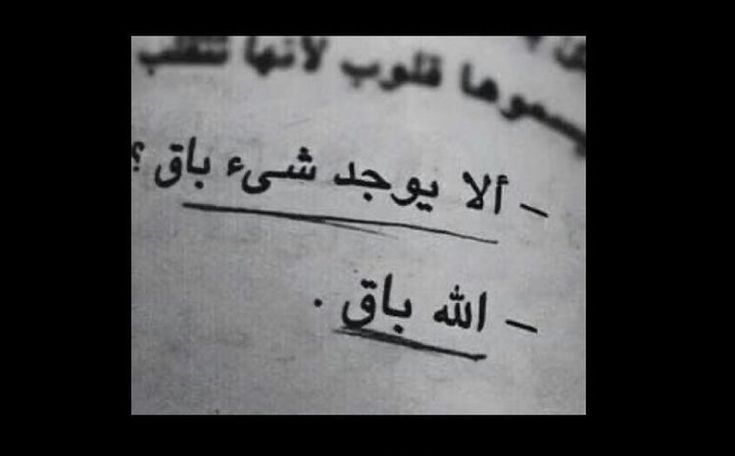 يسموها قلوب لأنها تتقلب
- ألا يوجد شىء باق ؟
- الله باق .